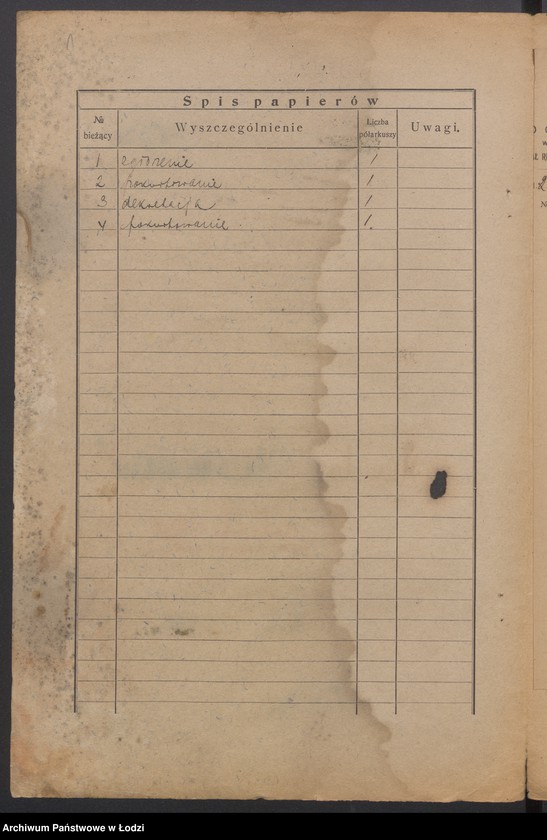 Spis papierów
№ bieżący
Wyszczególnienie
Liczba półarkuszy
Uwagi.
1 zgłoszenie 1
2 1
3 1
4 1
Archiwum Państwowe w Łodzi